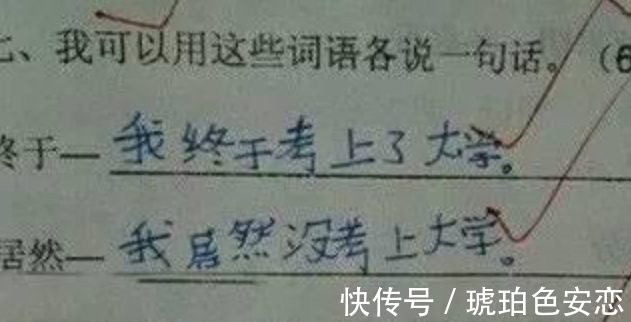 七、我可以用这些词语各说一句话。（6
终于— 我终于考上了大学。
居然— 我居然没考上大学。
快传号 / 琥珀色安恋